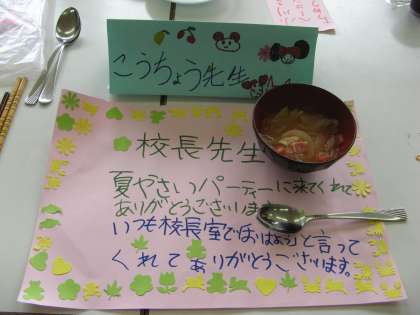 こうちょう先生
校長先生
夏やさいパーティーに来てくれて
ありがとうございま
いつも校長室で「おはよう」と言って
くれてありがとうございます。